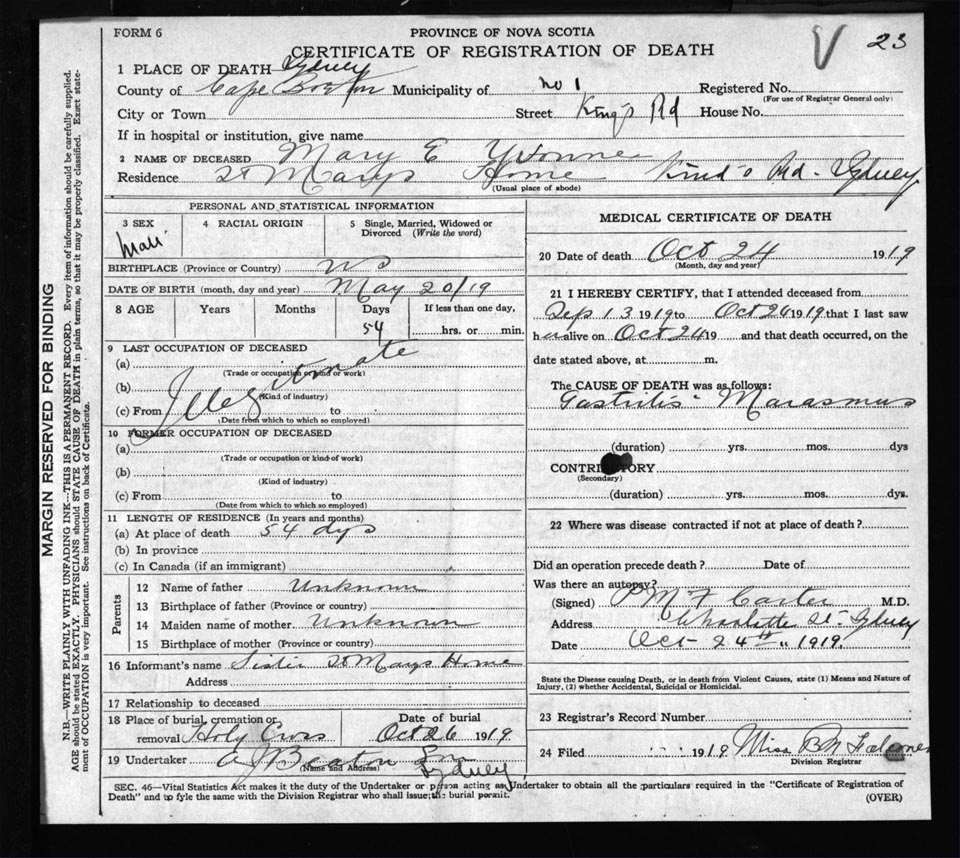 FORM 6
PROVINCE OF NOVA SCOTIA
23
CERTIFICATE OF REGISTRATION OF DEATH
1 PLACE OF DEATH—Sydney
County of Cape Breton Municipality of No 1 Registered No.
(For use of Registrar General only)
City or Town Street King's Rd House No.
If in hospital or institution, give name
2 NAME OF DECEASED Mary E Yvonne
Residence St Marys Home Sydney
(Usual place of abode)
PERSONAL AND STATISTICAL INFORMATION
3 SEX 4 RACIAL ORIGIN 5 Single, Married, Widowed or Divorced (Write the word)
BIRTHPLACE (Province or Country) NS
DATE OF BIRTH (month, day and year) May 20/19
8 AGE Years Months Days If less than one day,
54 hrs. or min.
9 LAST OCCUPATION OF DECEASED
(a)
(Trade or occupation or kind or work)
(b)
(Kind of industry)
(c) From to
(Date from which to which so employed)
10 FORMER OCCUPATION OF DECEASED
(a)
(Trade or occupation or kind of work)
(b)
(Kind of industry)
(c) From to
(Date from which to which so employed)
11 LENGTH OF RESIDENCE (In years and months)
(a) At place of death 54 dys
(b) In province
(c) In Canada (if an immigrant)
Parents
12 Name of father Unknown
13 Birthplace of father (Province or country)
14 Maiden name of mother Unknown
15 Birthplace of mother (Province or country)
16 Informant's name Sister St Marys Home
Address
17 Relationship to deceased
18 Place of burial, cremation or Date of burial
removal Holy Cross Oct 26 1919
19 Undertaker A J Beaton
(Name and Address) Sydney
MEDICAL CERTIFICATE OF DEATH
20 Date of death Oct 24 1919
(Month, day and year)
21 I HEREBY CERTIFY, that I attended deceased from
Sep 13 1919 to Oct 1919 that I last saw
h alive on Oct 24 19 and that death occurred, on the
date stated above, at m.
The CAUSE OF DEATH was as follows:
Gastritis - Marasmus
(duration) yrs. mos. dys
CONTRIBUTORY
(Secondary)
(duration) yrs. mos. dys.
22 Where was disease contracted if not at place of death?
Did an operation precede death? Date of
Was there an autopsy?
(Signed) Carter M.D.
Address Charlotte St - Sydney
Date Oct 24th 1919.
State the Disease causing Death, or in death from Violent Causes, state (1) Means and Nature of
Injury, (2) whether Accidental, Suicidal or Homicidal.
23 Registrar's Record Number
24 Filed 1919 Miss
Division Registrar
SEC. 46—Vital Statistics Act makes it the duty of the Undertaker or person acting as Undertaker to obtain all the particulars required in the "Certificate of Registration of
Death" and to fyle the same with the Division Registrar who shall issue the burial permit.
(OVER)
MARGIN RESERVED FOR BINDING
N.B.—WRITE PLAINLY WITH UNFADING INK—THIS IS A PERMANENT RECORD. Every item of information should be carefully supplied.
AGE should be stated EXACTLY. PHYSICIANS should STATE CAUSE OF DEATH in plain terms, so that it may be properly classified. Exact state-
ment of OCCUPATION is very important. See instructions on back of Certificate.